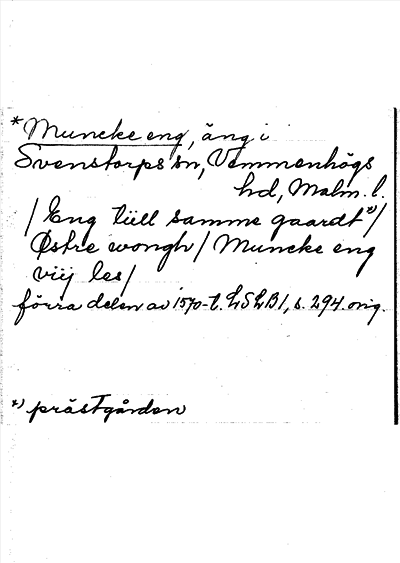 *Muncke eng, äng i
Svenstorps sn, Vemmenhögs
hd, Malm. l.
/Eng till samme gaardt*)/
Østre wongh/Muncke eng
viij les/
förra delen av 1570-t. LSLB1, s. 294 orig.
*) prästgården